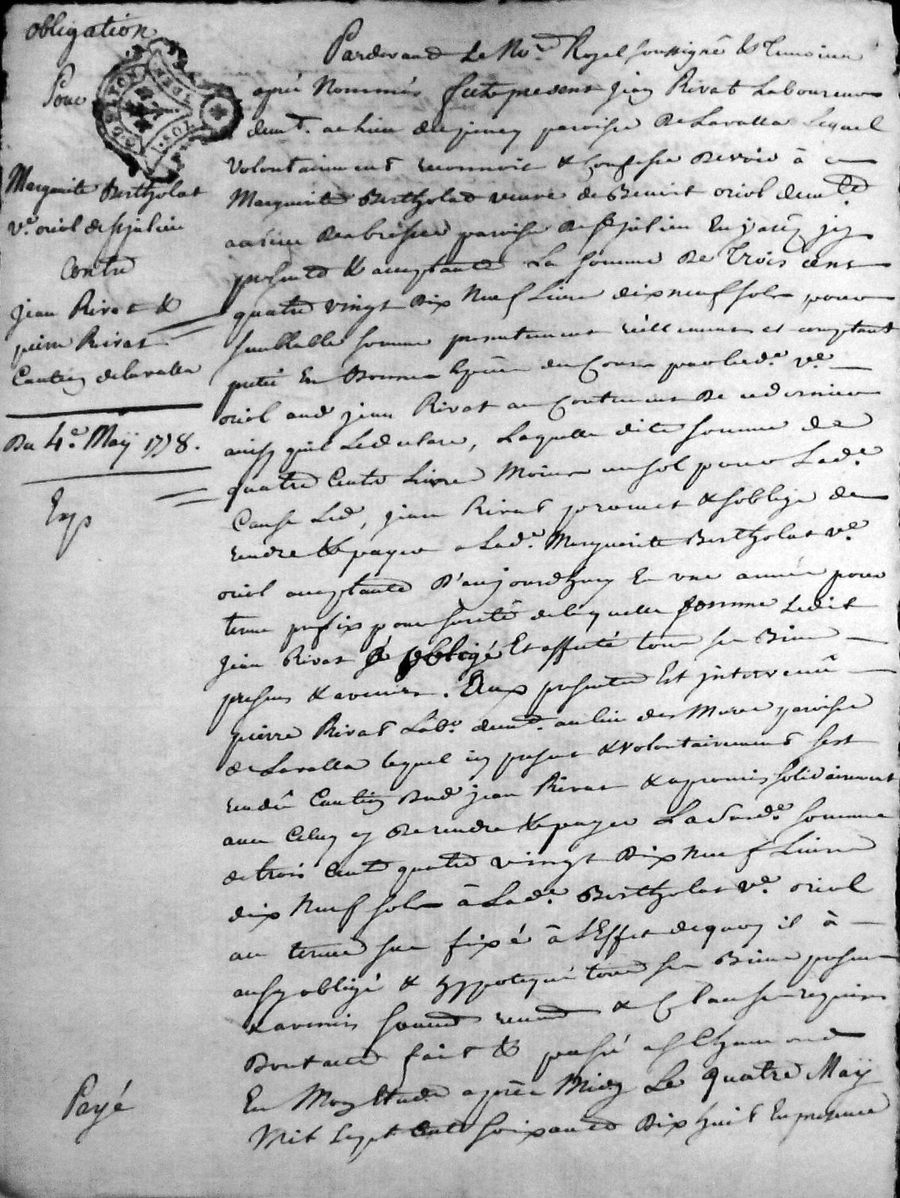 obligation
Pour
Marguerite Bertholat
ve. oriol de st julien
Contre
jean Rivat &
pierre Rivat
Caution de lavalla
Du 4e. Maÿ 1778.
Exp
Payé
Pardevand Le Nore. Royal soussigné & Temoins
aprés Nommés fut present jean Rivat Laboureur
demt. au Lieu du paroisse De Lavalla Lequel
Volontairement reconnoit & Confesse Devoir à
Marguerite Bertholat veuve de Benoit oriol demte.
au Lieu De paroisse De st julien En jarêt jcy
presente & acceptante La somme De Trois cent
quatre vingt Dix Neuf Livre dix neuf sols, pour
semblable somme presentement réellement et comptant
preté En Bonnes Espèces du Cours par lade. ve.
oriol aud jean Rivat au Contentement De ce dernier
ainsy qu'il Le declare, Laquelle dite somme de
quatre Cents Livre Moins un sol pour Lade.
Cause Led, jean Rivat promet & s'oblige de
rendre & payer a Lade. Marguerite Bertholat ve.
oriol acceptante D'aujourdhuy En une année pour
terme prefix pour sureté de laquelle somme Ledit
jean Rivat à obligé Et affecté tous ses Biens
presens & avenirs. Aux presentes Est intervenû
pierre Rivat Labr. demt. au lieu des Mures paroisse
de Lavalla lequel icy present & volontairement s'est
rendû Caution Dud jean Rivat & a promis solidairement
avec Celuy cy De rendre & payer La Susde. somme
de trois Cent quatre vingt Dix Neuf Livre
dix Neuf sols à Lade. Bertholat ve. oriol
au terme sus fixé à L'Effet de quoy il à
aussy obligé & hyppotequé tous ses Biens presens
& avenirs & Clauses requises
Dont acte fait & passé a st chamond
En Mon Etude après Midy Le quatre Maÿ
Mil sept Cent soixante Dix huit En presence